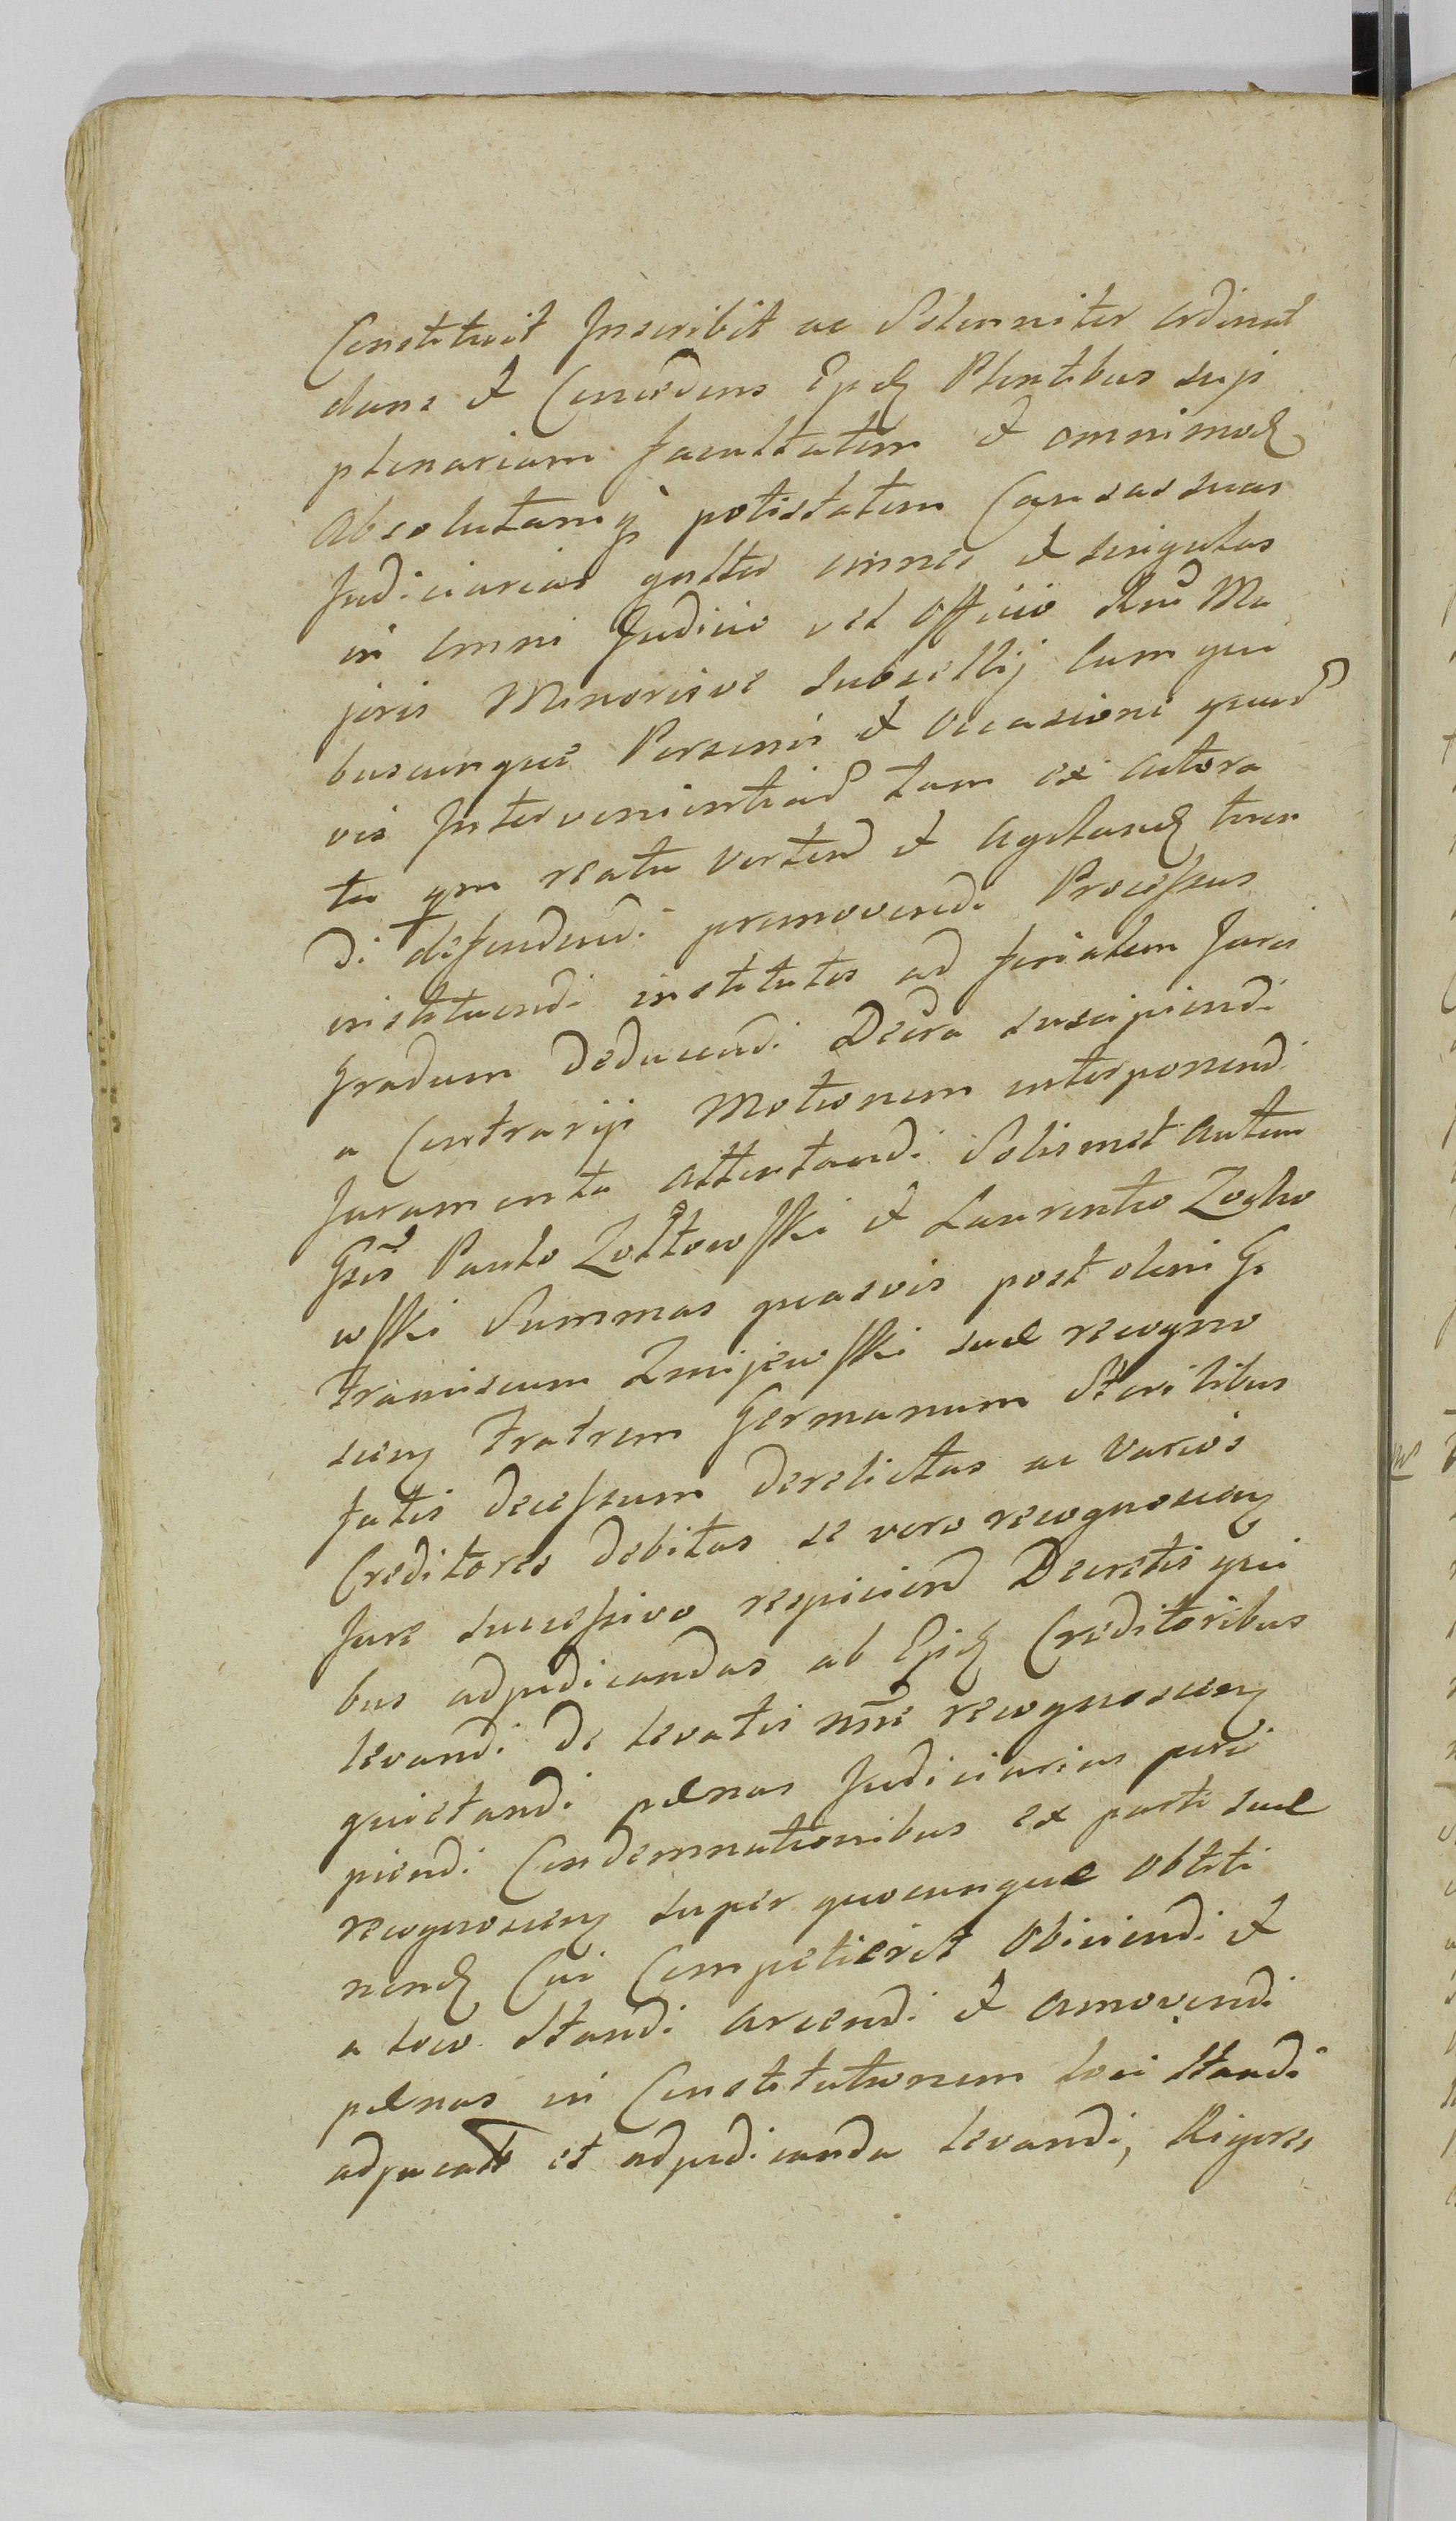 Constituit Inscribit ac Solenniter ordinat
dans et Concedens Ejsd Plentibus suis
plenariam facultatem et omnimod
Absolutamq potestatem Causas suas
Judiciarias gnlter omnes et singulas
in omni Judicio vel Officio Rni Ma
joris Minorisve Subsellij Cum qui
buscunque Personis et occasione quad
vis Intervenientiad tam ex actora
tu qm reatu verten et Agitand tuen
di defendendi promovendi Processus
instituendi institutos ad finalem Juris
gradum deducendi Decra suscipiendi
a Contrarijs Motionem interponendi
Juramenta Attentandi Solismet Autem
Gsis Paulo Zołtowski et Laurentio Zocho
wski Summas quasvis post olim G.
Franciscum Zmijewski suae recogno
scen Fratrem Germanum Sterilibus
fatis decessum derelictas ac varios
Creditores debitas se vero recognoscen
Jure successivo respicien Decretis qui
bus adjudicandas ab Ejsd Creditoribus
levandi de levatis nne recognoscen
quietandi paenas Judiciarias perci
piendi Condemnationibus ex parte suae
recognoscen super quocunque obtiti
nend Cui Competierit Obiiciendi et
a loco Standi arcendi et amovendi
paenas in Constitutionem loci standi
et adjudicanda levandi, Rigores